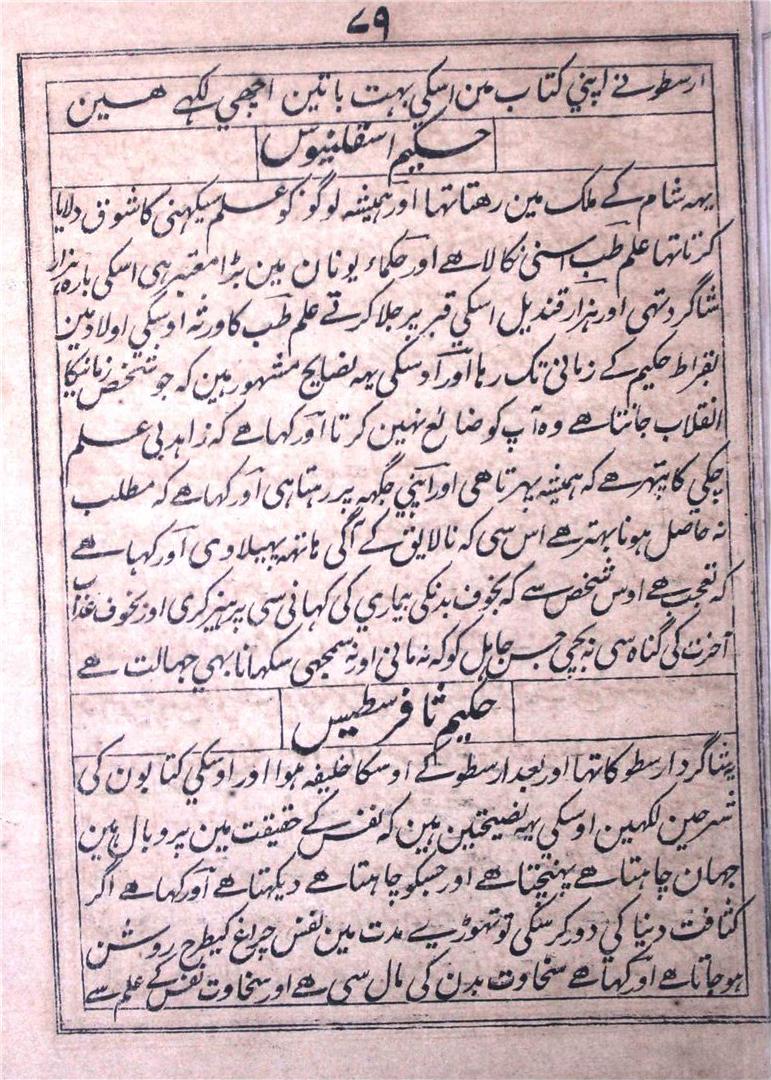 ۷۹
ارسطو نے اپني کتاب مین اسکي بہت باتین اچھي لکہے ھین
حکیم اسقلینوس
یہہ شام کے ملک مین رھتا تھا اور ہمیشہ لوگونکو علم سیکہنی کا شوق دلایا
کرتا تھا علم طب اسنی نکالا ھے اور حکماء یونان مین بڑا معتبر ہی اسکی بارہ ہزار
شاگرد تہی اور ہزار قندیل اسکي قبر پر جلا کرتے علم طب کا ورثہ اوسکي اولاد مین
بقراط حکیم کے زمانی تک رہا اور اوسکی یہہ نصایح مشہور ہین کہ جو شخص زمانیکا
انقلاب جانتا ھے وہ آپ کو ضائع نہین کرتا اور کہا ھے کہ زاہد بی علم
چکي کا پتہر ھے کہ ہمیشہ پہرتا ھی اور اپني جگہہ پر رہتا ہی اور کہا ھے کہ مطلب
نہ حاصل ہونا بہتر ھے اس سی کہ نالایق کے آگی ہاتہہ پہیلاوی اور کہا ھے
کہ تعجب ھے اوس شخص سے کہ بخوف بدنکی بیماري کی کہانی سی پرہیز کری اور بخوف عذاب
آخرت کی گناہ سی نہ بچی جس جاہل کو کہ نہ مانی اور نہ سمجہی سکہانا بہي جہالت ھے
حکیم ثافرسطیس
یہ شاگرد ارسطو کا تہا اور بعد ارسطو کے اوسکا خلیفہ ہوا اور اوسکي کتابون کی
شرحین لکھین اوسکی یہہ نصیحتین ہین کہ نفس کے حقیقت مین پر و بال ہین
جہان چاہتا ھے پہنچتا ھے اور جسکو چاہتا ھے دیکہتا ھے اور کہا ھے اگر
کثافت دنیا کی دور کر سکی تو تہوڑے مدت مین نفس چراغ کیطرح روشن
ہو جاتا ھے اور کہا ھے سخاوت بدن کی مال سی ھے اور سخاوت نفس کے علم سے